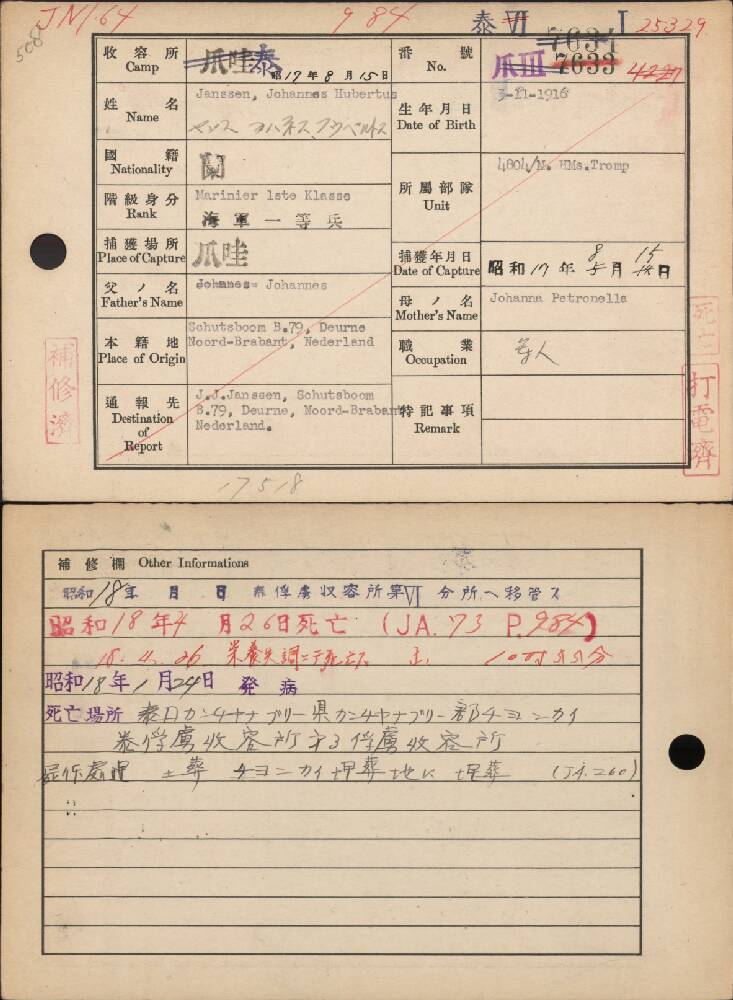 JN1.64
984
泰 VI I
25329
508
收容所
Camp
爪哇 泰
昭17年8月15日
番號
No.
爪III 7634
7633
4227
姓名
Name
Janssen, Johannes Hubertus
ヤンス ヨハネス フウベルトス
生年月日
Date of Birth
3-11-1916
國籍
Nationality
蘭
所屬部隊
Unit
4804/M. HMs.Tromp
階級身分
Rank
Marinier 1ste Klasse
海軍一等兵
捕獲場所
Place of Capture
爪哇
捕獲年月日
Date of Capture
8 15
昭和17年5月 日
父ノ名
Father's Name
Johannes
母ノ名
Mother's Name
Johanna Petronella
本籍地
Place of Origin
Schutsboom B.79, Deurne
Noord-Brabant, Nederland
職業
Occupation
軍人
通報先
Destination
of
Report
J.J.Janssen, Schutsboom
B.79, Deurne, Noord-Brabant
Nederland.
特記事項
Remark
補修濟
死亡
打電濟
17518
補修欄 Other Informations
昭和18年 月 日 泰俘虜収容所第VI分所ヘ移管ス
昭和18年4月26日死亡 (JA.73 P.984)
18.4.26 栄養失調ニテ死亡ス 10時55分
昭和18年1月24日 発病
死亡場所 泰国カンチヤナブリー県カンチヤナブリー郡チヨンカイ
泰俘虜收容所第3俘虜收容所
屍体處理 土葬 チヨンカイ埋葬地に埋葬 (JA.260)